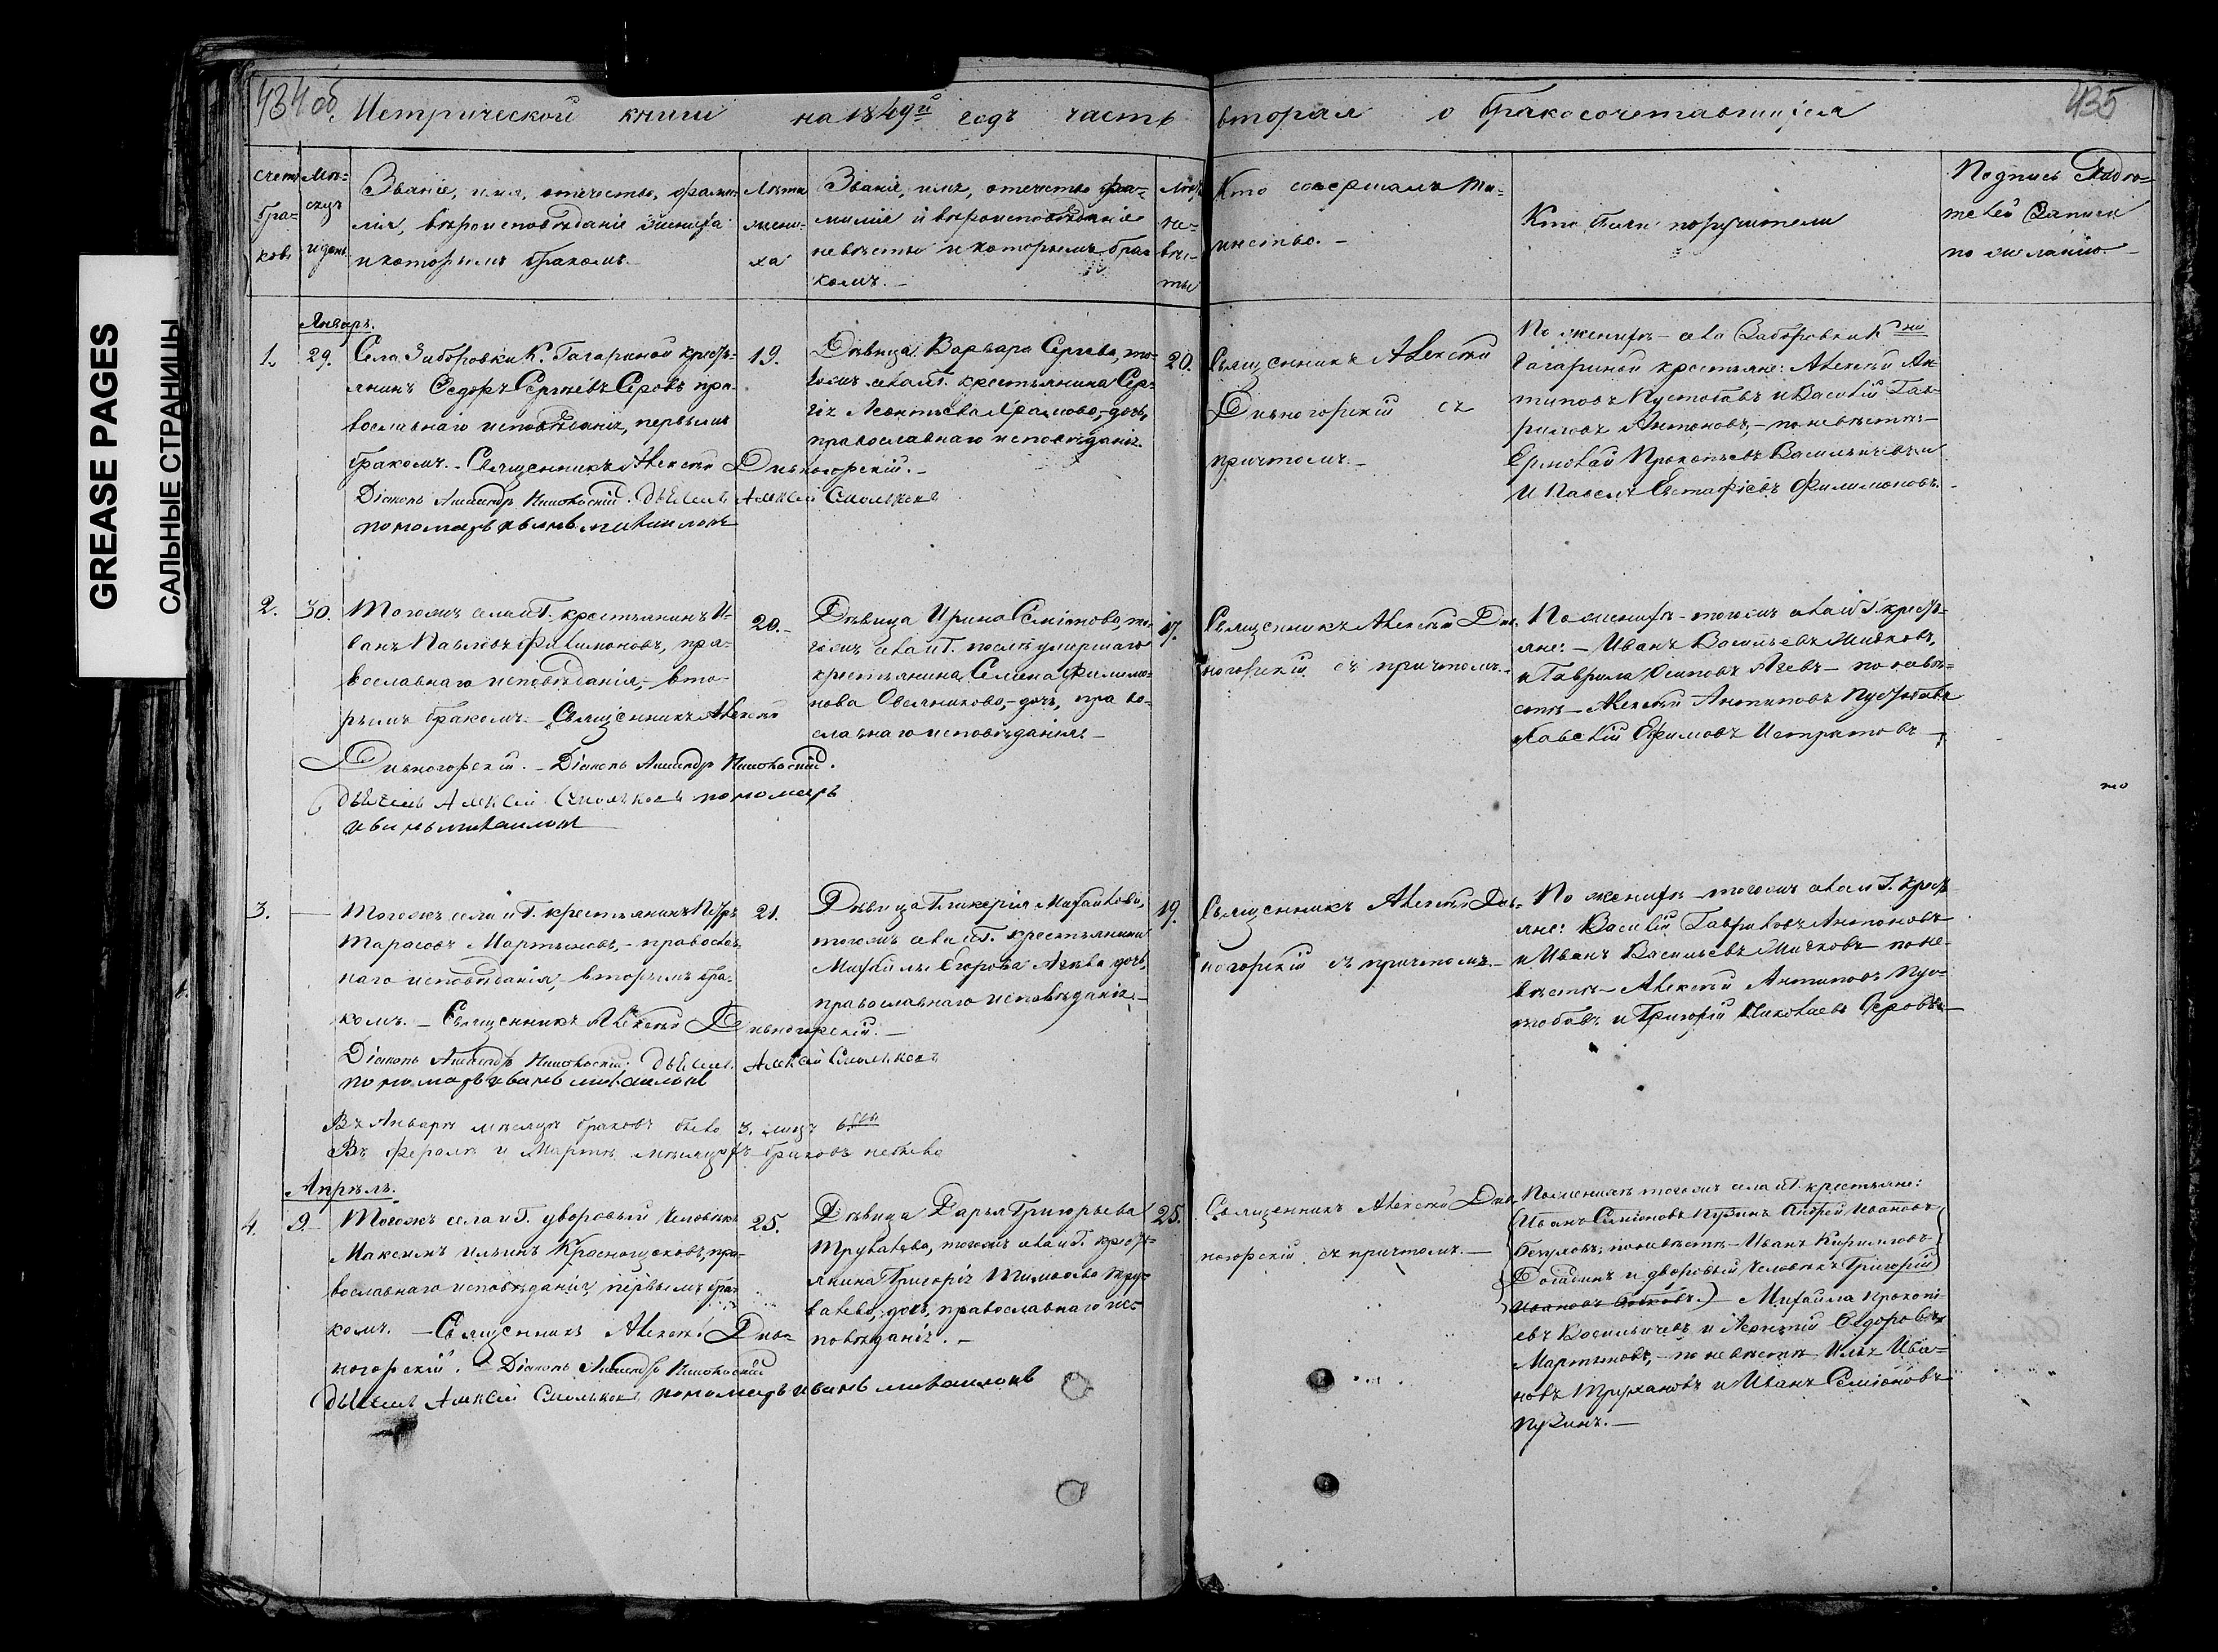 GREASE PAGES
САЛЬНЫЕ СТРАНИЦЫ
434 об.
435
Метрической книги на 1849й годъ часть вторая о бракосочетавшихся
счетъ бра- ковъ
Мѣ- сяцъ и день
Званіе, имя, отечество, фами-
лія, вѣроисповѣданіе жениха
и которымъ бракомъ.
Лѣта жени- ха
Званіе, имя, отечество фа-
милія и вѣроисповѣданіе
невѣсты и которымъ бра-
комъ.
Лѣта не- вѣс- ты
Кто совершалъ та-
инство.
Кто были поручители
Подпись Свидѣ-
телей Записи
по желанію.
Январь.
1. 29.
Села Заборовки К. Гагариной кресть-
янинъ Ѳедоръ Сергѣевъ Серовъ пра-
вославнаго исповѣданія, первымъ
бракомъ. Священникъ Алексѣй Дивногорскій.
Діаконъ Александръ
Дьячекъ Алексѣй Смольковъ
пономарь иванъ михаиловъ
19.
Дѣвица Варвара Сергѣева, то-
гожъ села и Г. крестьянина Сер-
гія Леонтьева дочь,
православнаго исповѣданія.
20.
Священникъ Алексѣй
Дивногорскій съ
причтомъ.
По женихѣ села Заборовки К-ни
Гагариной крестьяне: Алексѣй Ан-
типовъ Пустобаевъ и Василій Гав-
риловъ Антоновъ, по невѣстѣ
Ермолай Прокопьевъ Васильичевъ
и Павелъ Евстафіевъ Филимоновъ.
2. 30.
Тогожъ села и Г. крестьянинъ И-
ванъ Павловъ Филимоновъ, пра-
вославнаго исповѣданія, вто-
рымъ бракомъ. Священникъ Алексѣй
Дивногорскій. Діаконъ Александръ
Дьячекъ Алексѣй Смольковъ пономарь
иванъ михаиловъ
20.
Дѣвица Ирина Семіонова, то-
гожъ села и Г. послѣ умершаго
крестьянина Семена Филимо-
нова Овсянникова, дочь, право-
славнаго исповѣданія.
17.
Священникъ Алексѣй Див-
ногорскій съ причтомъ.
По женихѣ тогожъ села и Г. кресть-
яне: Иванъ Васильевъ
и Гаврила Осиповъ Агѣевъ по невѣ-
стѣ Алексѣй Антиповъ Пустобаевъ
Савелій Ефимовъ Истратовъ
3.
Тогожъ села и Г. крестьянинъ Петръ
Тарасовъ Мартыновъ, православ-
наго исповѣданія, вторымъ бра-
комъ. Священникъ Алексѣй Дивногорскій.
Діаконъ Александръ
Дьячекъ Алексѣй Смольковъ
пономарь иванъ михаиловъ
21.
Дѣвица Гликерія Михайлова,
тогожъ села и Г. крестьянина
Михайлы Егорова Агѣева дочь,
православнаго исповѣданія.
19.
Священникъ Алексѣй Див-
ногорскій съ причтомъ.
По женихѣ тогожъ села и Г. кресть-
яне: Василій Гавриловъ Антоновъ
и Иванъ Васильевъ по не-
вѣстѣ Алексѣй Антиповъ Пус-
тобаевъ и Григорій Николаевъ Серовъ
Въ Январѣ мѣсяцѣ браковъ было 3. лицъ 6.
Въ Февралѣ и Мартѣ мѣсяцахъ браковъ небыло
Апрѣль.
4. 9.
Тогожъ села и Г. дворовый человѣкъ
Максимъ Ильинъ Краснощоковъ, пра-
вославнаго исповѣданія, первымъ бра-
комъ. Священникъ Алексѣй Див-
ногорскій. Діаконъ Александръ
Дьячекъ Алексѣй Смольковъ пономарь иванъ михаиловъ
25.
Дѣвица Дарья Григорьева
тогожъ села и Г. кресть-
янина Григорія
дочь, православнаго ис-
повѣданія.
25.
Священникъ Алексѣй Див-
ногорскій съ причтомъ.
По женихѣ тогожъ села и Г. крестьяне:
(Иванъ Семіоновъ Пузинъ Андрей Ивановъ
по невѣстѣ Иванъ Кириловъ
и дворовый человѣкъ Григорій
Ивановъ) Михайла Прокопі-
евъ Васильичевъ и Ѳедоровъ
Мартыновъ, по невѣстѣ Илья Ива-
новъ и Иванъ Семіоновъ
Пузинъ.